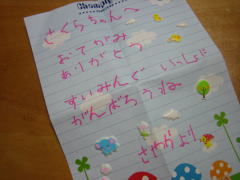 さくらちゃんへ
おてがみ
ありがとう
すいみんぐ いっしょに
がんばろうね
さやかより